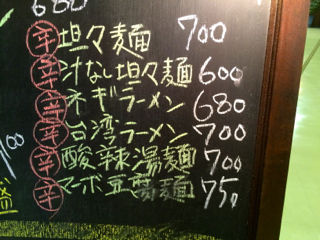 680
辛 坦々麺 700
辛 汁なし坦々麺 600
辛 ネギラーメン 680
辛 台湾ラーメン 700
辛 酸辣湯麺 700
辛 マーボ豆腐麺 750